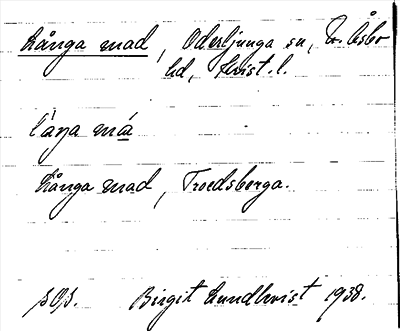 Långa mad, Oderljunga sn, N. Åsbo
hd, Krist. l.
låŋa má
Långa mad, Troedsberga.
SOS. Birgit Lundkvist 1938.